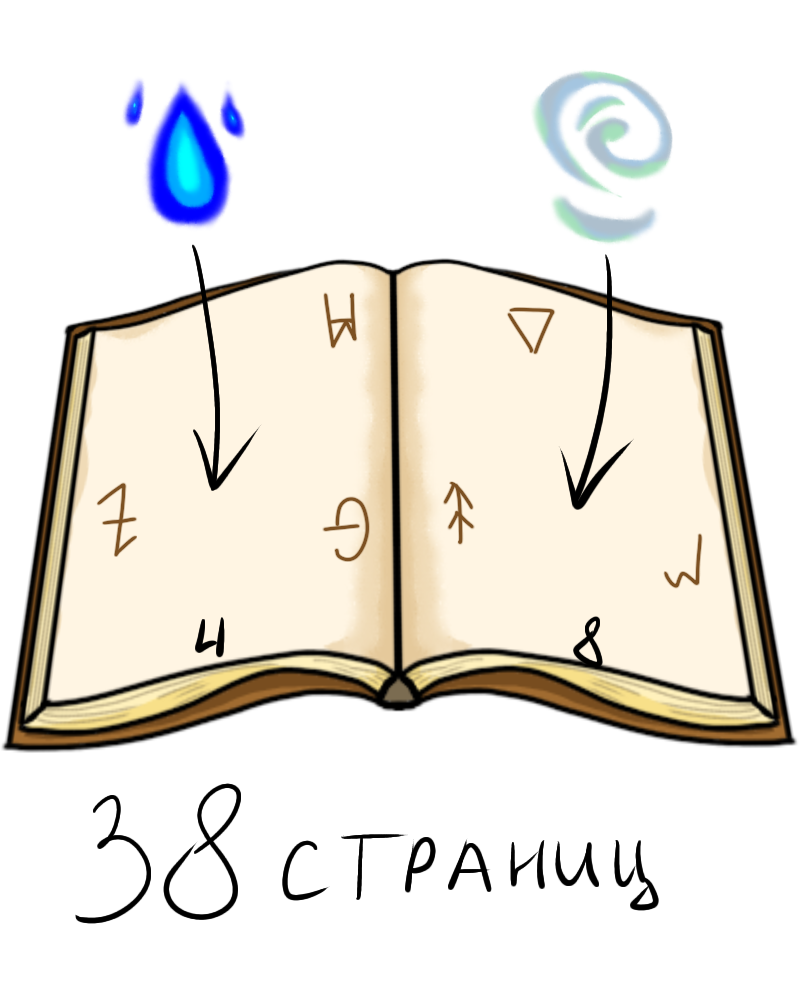 4 8
38 страниц